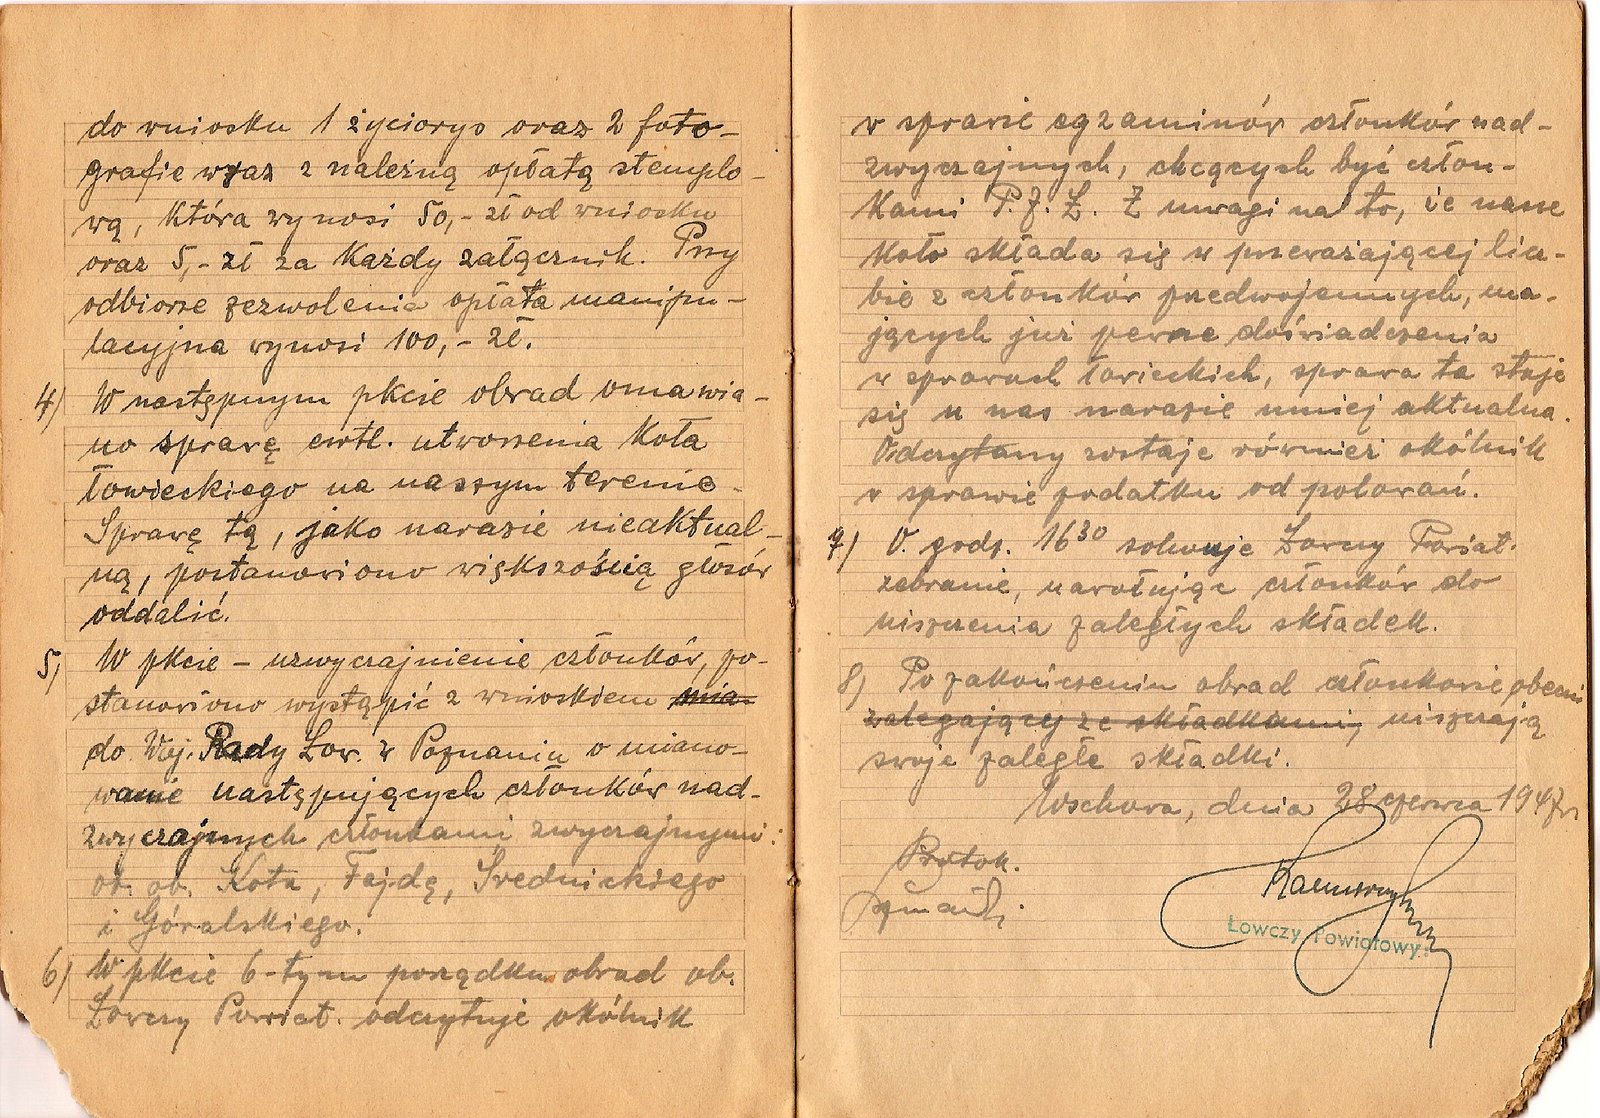 do wniosku 1 życiorys oraz 2 foto-
grafie wraz z należną opłatą stemplo-
wą, która wynosi 50,- zł od wniosku
oraz 5,- zł za każdy załącznik. Przy
odbiorze zezwolenia opłata manipu-
lacyjna wynosi 100,- zł.
4) W następnym pkcie obrad omawia-
no sprawę ewtl. utworzenia Koła
łowieckiego na naszym terenie.
Sprawę tą, jako narazie nieaktual-
ną, postanowiono większością głosów
oddalić.
5) W pkcie – uzwyczajnienie członków, po-
stanowiono wystąpić z wnioskiem mia-
do Woj. Rady Łow. w Poznaniu o miano-
wanie następujących członków nad-
zwyczajnych członkami zwyczajnymi:
ob. ob. Kota, Fejdę, Srednickiego
i Góralskiego.
6) W pkcie 6-tym porządku obrad ob.
Łowczy Powiat. odczytuje okólnik
w sprawie egzaminów członków nad-
zwyczajnych, chcących być człon-
kami P.Z.Ł. Z uwagi na to, że nasze
Koło składa się w przeważającej licz-
bie z członków przedwojennych, ma-
jących już pewne doświadczenia
w sprawach łowieckich, sprawa ta staje
się u nas narazie mniej aktualna.
Odczytany zostaje również okólnik
w sprawie podatku od polowań.
7) O. godz. 16³⁰ solwuje Łowczy Powiat.
zebranie, nawołując członków do
uiszczenia zaległych składek.
8) Po zakończeniu obrad członkowie obecni
zalegający ze składkami, uiszczają
swoje zaległe składki.
Wschowa, dnia 28 czerwca 1947 r.
Protok.
Łowczy Powiatowy